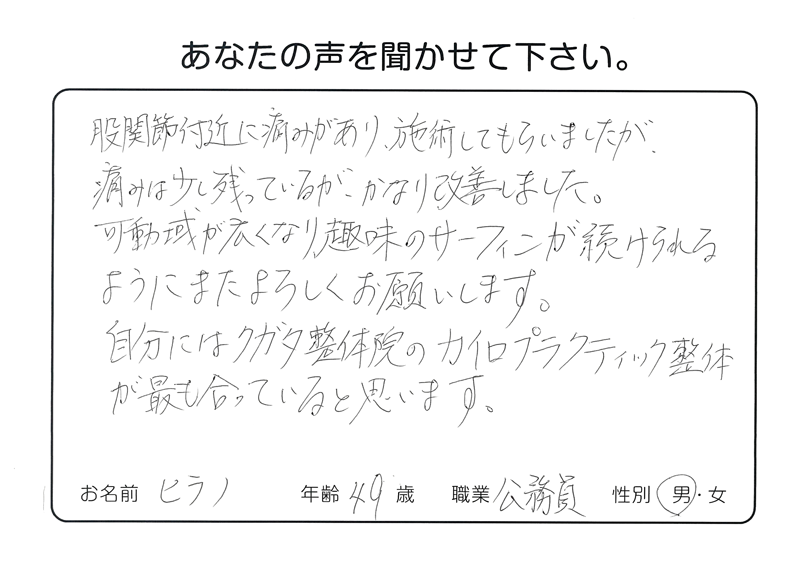 あなたの声を聞かせて下さい。
股関節付近に痛みがあり、施術してもらいましたが、
痛みは少し残っているが、かなり改善しました。
可動域が広くなり趣味のサーフィンが続けられる
ようにまたよろしくお願いします。
自分にはクガタ整体院のカイロプラクティック整体
が最も合っていると思います。
お名前 ヒラノ 年齢 49 歳 職業 公務員 性別 男・女